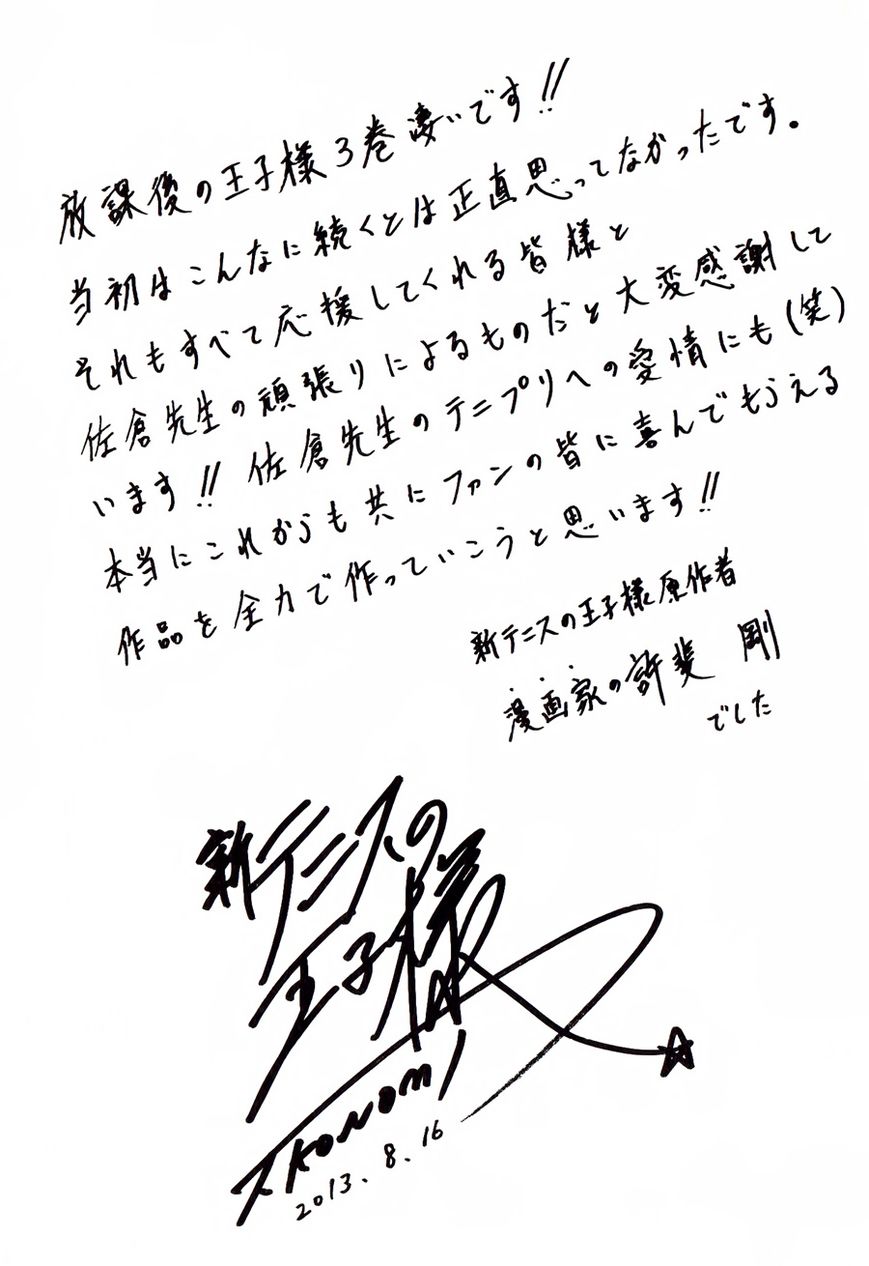 放課後の王子様3巻凄いです!!
当初はこんなに続くとは正直思ってなかったです。
それもすべて応援してくれる皆様と
佐倉先生の頑張りによるものだと大変感謝して
います!! 佐倉先生のテニプリへの愛情にも(笑)
本当にこれからも共にファンの皆に喜んでもらえる
作品を全力で作っていこうと思います!!
新テニスの王子様原作者
漫画家の許斐 剛
でした
新テニスの
王子様
T KONOMI
2013.8.16